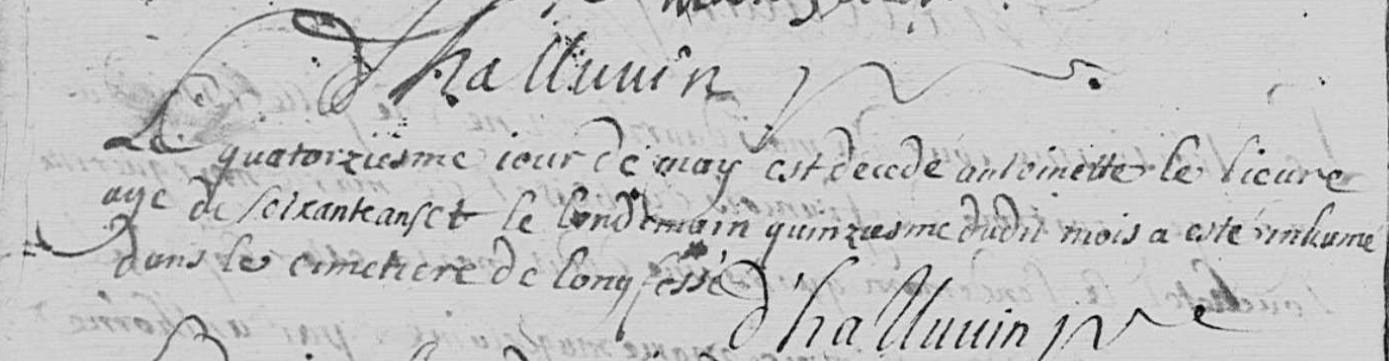 Dhalluuin
Le quatorziesme iour de may est decede antoinette le lieure
age de soixante ans et le lendemain quinziesme dudit mois a esté inhumé
dans le cimetiere de longfossé
d'halluuin